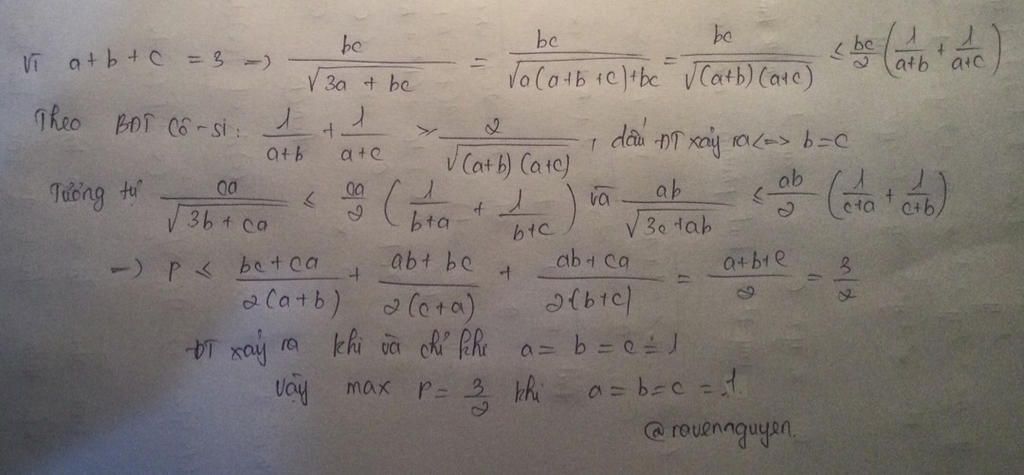 Vì a+b+c = 3 → bc/√(3a + bc) = bc/√(a(a+b+c)+bc) = bc/√((a+b)(a+c)) ≤ bc/2 (1/(a+b) + 1/(a+c))
Theo BĐT Cô-si: 1/(a+b) + 1/(a+c) ≥ 2/√((a+b)(a+c)), dấu ĐT xảy ra <=> b=c
Tương tự ca/√(3b + ca) ≤ ca/2 (1/(b+a) + 1/(b+c)) và ab/√(3c+ab) ≤ ab/2 (1/(c+a) + 1/(c+b))
→ P ≤ (bc + ca)/(2(a+b)) + (ab+ bc)/(2(c+a)) + (ab+ca)/(2(b+c)) = (a+b+c)/2 = 3/2
ĐT xảy ra khi và chỉ khi a = b = c = 1
Vậy max P = 3/2 khi a = b = c = 1.
@ravennguyen.